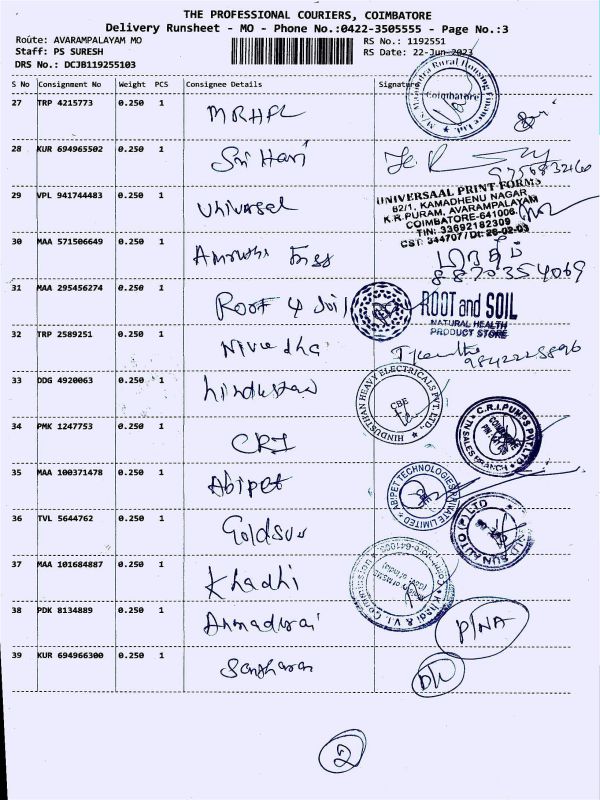 THE PROFESSIONAL COURIERS, COIMBATORE
Delivery Runsheet - MO - Phone No.:0422-3505555 - Page No.:3
Route: AVARAMPALAYAM MO
RS No.: 1192551
Staff: PS SURESH
RS Date: 22-Jun-2023
DRS No.: DCJB119255103
S No Consignment No Weight PCS Consignee Details Signature
27 TRP 4215773 0.250 1 MRHFL
Coimbatore
28 KUR 694965502 0.250 1 Sri Hari
29 VPL 941744483 0.250 1 Universel
UNIVERSAAL PRINT FORMS
62/1, KAMADHENU NAGAR
K.R.PURAM, AVARAMPALAYAM
COIMBATORE-641006.
TIN: 33692182309
CST: 344707 / Dt: 26-02-03
30 MAA 571506649 0.250 1
8870354069
31 MAA 295456274 0.250 1 Root & Soil
ROOT and SOIL
NATURAL HEALTH
PRODUCT STORE
32 TRP 2589251 0.250 1 Nivedha
33 DDG 4920063 0.250 1 hindustan
HINDUSTHAN HEAVY ELECTRICALS PVT. LTD.
CBE
34 PMK 1247753 0.250 1 CRI
C.R.I.PUMPS PVT LTD
TN SALES BRANCH
35 MAA 100371478 0.250 1 Abipet
ABIPET TECHNOLOGIES PRIVATE LIMITED
36 TVL 5644762 0.250 1 Goldsun
SUN AUTO (P) LTD
37 MAA 101684887 0.250 1 Khadhi
Khadi & V.I. Commission
38 PDK 8134889 0.250 1 Annadurai
P/NA
39 KUR 694966300 0.250 1
D/L
2